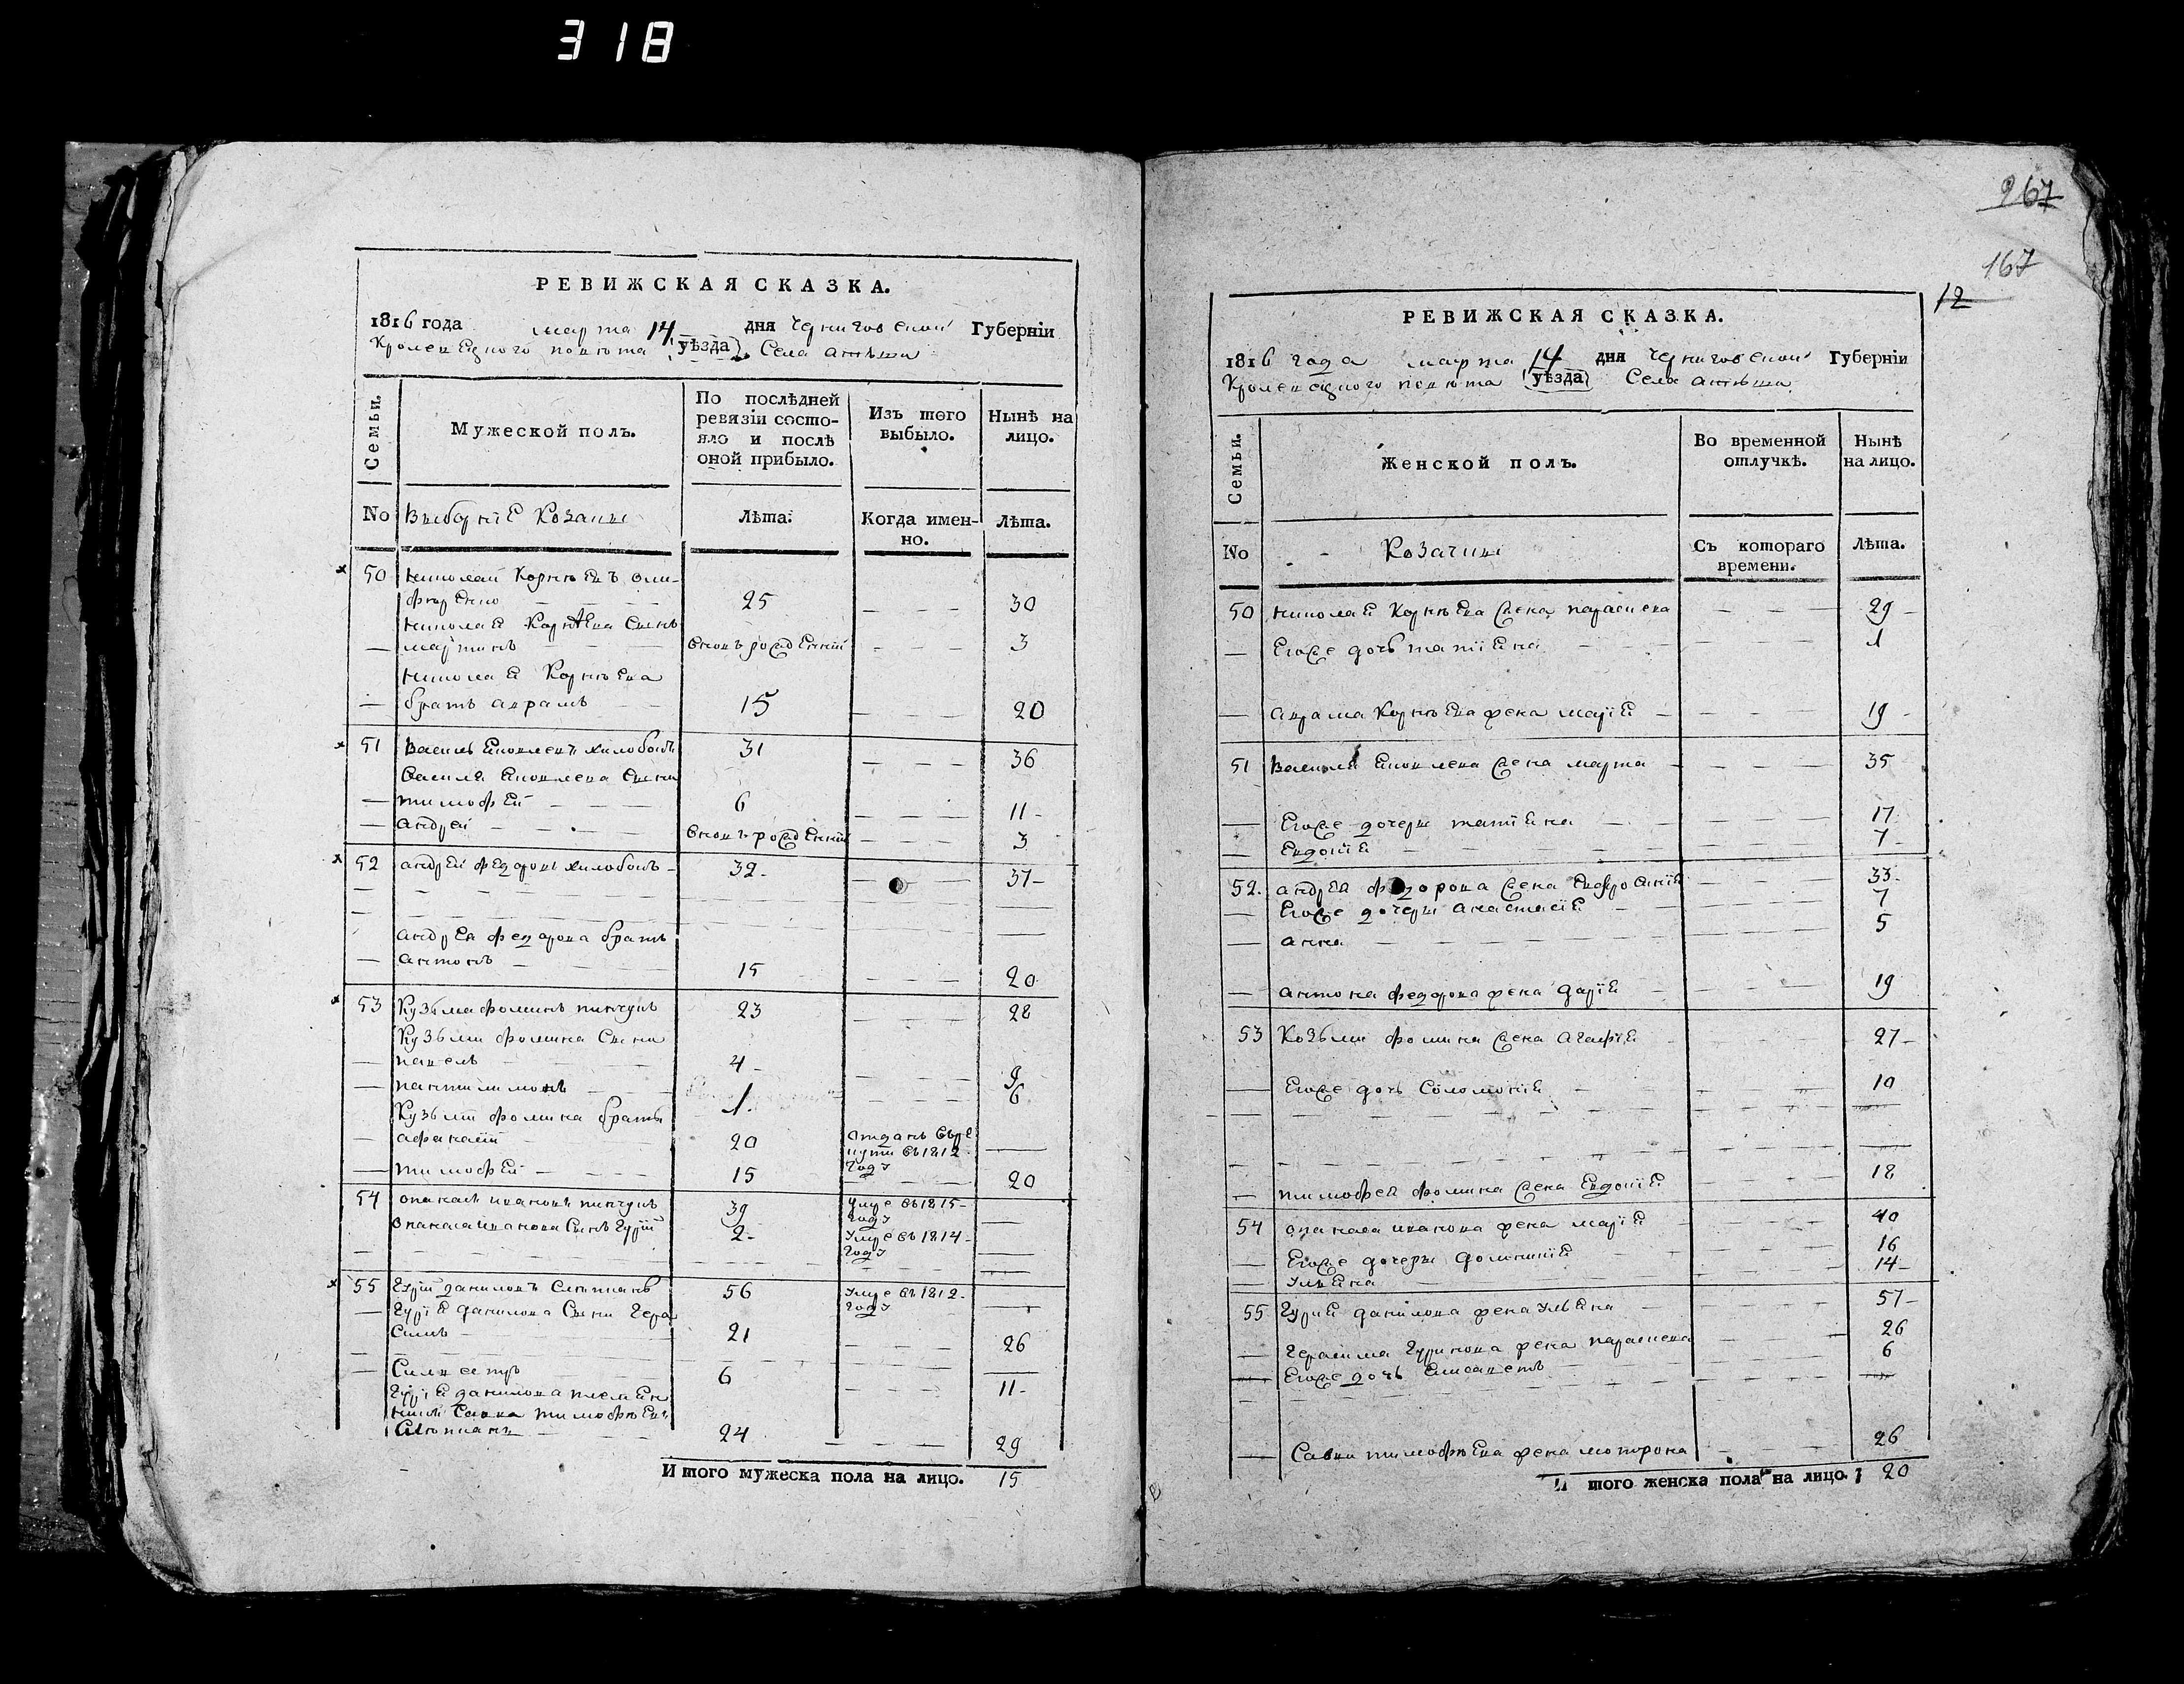 318
РЕВИЖСКАЯ СКАЗКА.
1816 года марта 14 дня Черниговской Губерніи
Кролевецкого повѣта уѣзда Села
Семьи.
Мужеской полъ.
По послѣдней
ревизіи состо-
яло и послѣ
оной прибыло.
Изъ того
выбыло.
Нынѣ на
лицо.
No Виборніе Козаки
Лѣта.
Когда имен-
но.
Лѣта.
50 Николай Корнѣевъ оли-
фѣренко 25 30
Николая Корнѣева Синъ
— мартинъ вновъ рожденній 3
Николая Корнѣева
— братъ аврамъ 15 20
51 Василь Яковлевъ хилобокъ 31 36
Василя Яковлева Сини
— тимофей 6 11
— андрей вновъ рожденній 3
52 андрей федоровъ хилобокъ 32 37
андрея федорова братъ
— антонъ 15 20
53 Кузьма фоминъ пинчукъ 23 28
Кузьми фомина Сини
— павелъ 4 9
— пантилимонъ 1. 6
Кузьми фомина братъя
— афанасій 20 отданъ въре
крути въ 1812
году
— тимофей 15 20
54 опанасъ ивановъ пинчукъ 39 Умре въ 1815
году
опанаса иванова Синъ Гурій 2 Умре въ 1814
году
55 Гурій даниловъ Слюпакъ 56 Умре въ 1812
году
— Гурія данилова Сини Гера
симъ 21 26
— Силвестръ 6 11
Гурія данилова племен
никъ Савка тимофѣевъ
24 29
Итого мужеска пола на лицо. 15
967
167
12
РЕВИЖСКАЯ СКАЗКА.
1816 года марта 14 дня Черниговской Губерніи
Кролевецкого повѣта уѣзда Села
Семьи.
Женской полъ.
Во временной
отлучкѣ.
Нынѣ
на лицо.
No Козачки
Съ котораго
времени.
Лѣта.
50 Николая Корнѣева жена параскева 29
— Егоже дочь татіяна 1
— аврама Корнѣева жена марія 19
51 Василя Яковлева жена марта 35
— Егоже дочери татіяна 17
— Евдокія 7
52. андрея федорова жена Евфросинія 33
— Егоже дочери анастасія 7
— анна 5
— антона федорова жена дарія 19
53 Козьми фомина жена Агафія 27
— Егоже дочь Соломонія 10
— тимофея фомина жена Евдокія 18
54 опанаса иванова жена марія 40
— Егоже дочери домникія 16
— Уляна 14
55 Гурия данилова жена Уляна 57
— Герасима Гурикова жена параскева 26
— Егоже дочь Елисаветъ 6
— Савки тимофѣева жена мотрона 26
Итого женска пола на лицо. 20